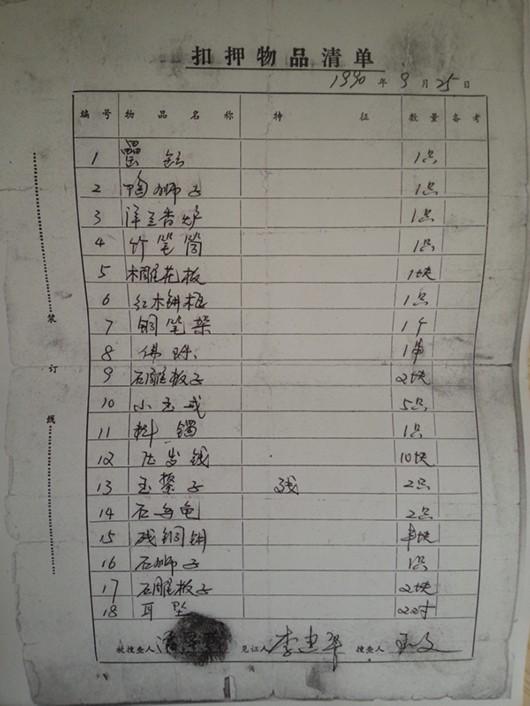 扣押物品清单
1990年9月25日
编号 物品名称 特征 数量 备考
1 1只
2 陶狮子 1只
3 洋兰香炉 1只
4 竹笔筒 1只
5 木雕花板 1块
6 红木 1只
7 铜笔架 1个
8 佛珠 1串
9 石雕板子 2块
10 小玉戒 5只
11 料镯 1只
12 压岁钱 10块
13 玉 子 残 2只
14 石乌龟 2只
15 残铜 块
16 石狮子 1只
17 石雕板子 2块
18 耳坠 2对
被搜查人 见证人 李建华 搜查人
装订线